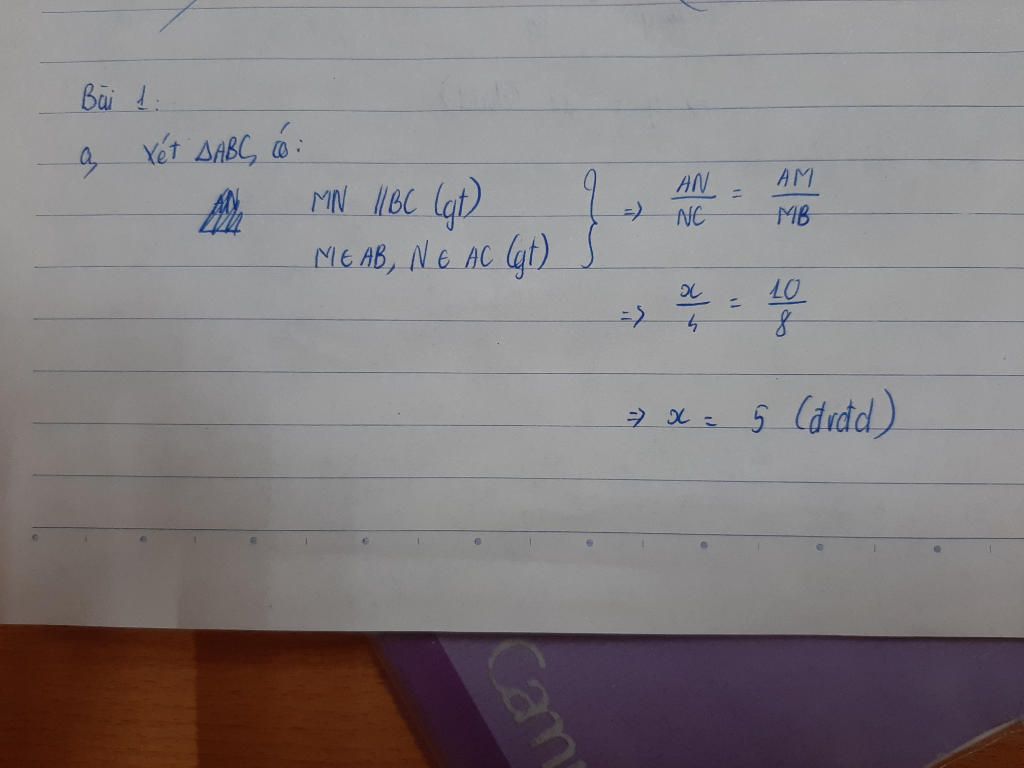 Bài 1:
a, Xét ΔABC, có:
MN // BC (gt)
M ∈ AB, N ∈ AC (gt)
} => AN/NC = AM/MB
=> x/4 = 10/8
=> x = 5 (đvđd)
Cam